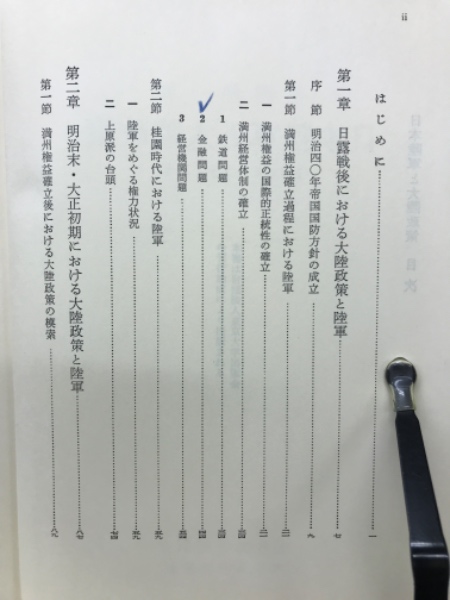 ii
はじめに……一
第一章 日露戦後における大陸政策と陸軍……七
序節 明治四〇年帝国国防方針の成立……八
第一節 満州権益確立過程における陸軍
一 満州権益の国際的正統性の確立
二 満州経営体制の確立
1 鉄道問題
2 金融問題
3 経営機関問題
第二節 桂園時代における陸軍
一 陸軍をめぐる権力状況
二 上原派の台頭
第二章 明治末・大正初期における大陸政策と陸軍……八七
第一節 満州権益確立後における大陸政策の模索……八九